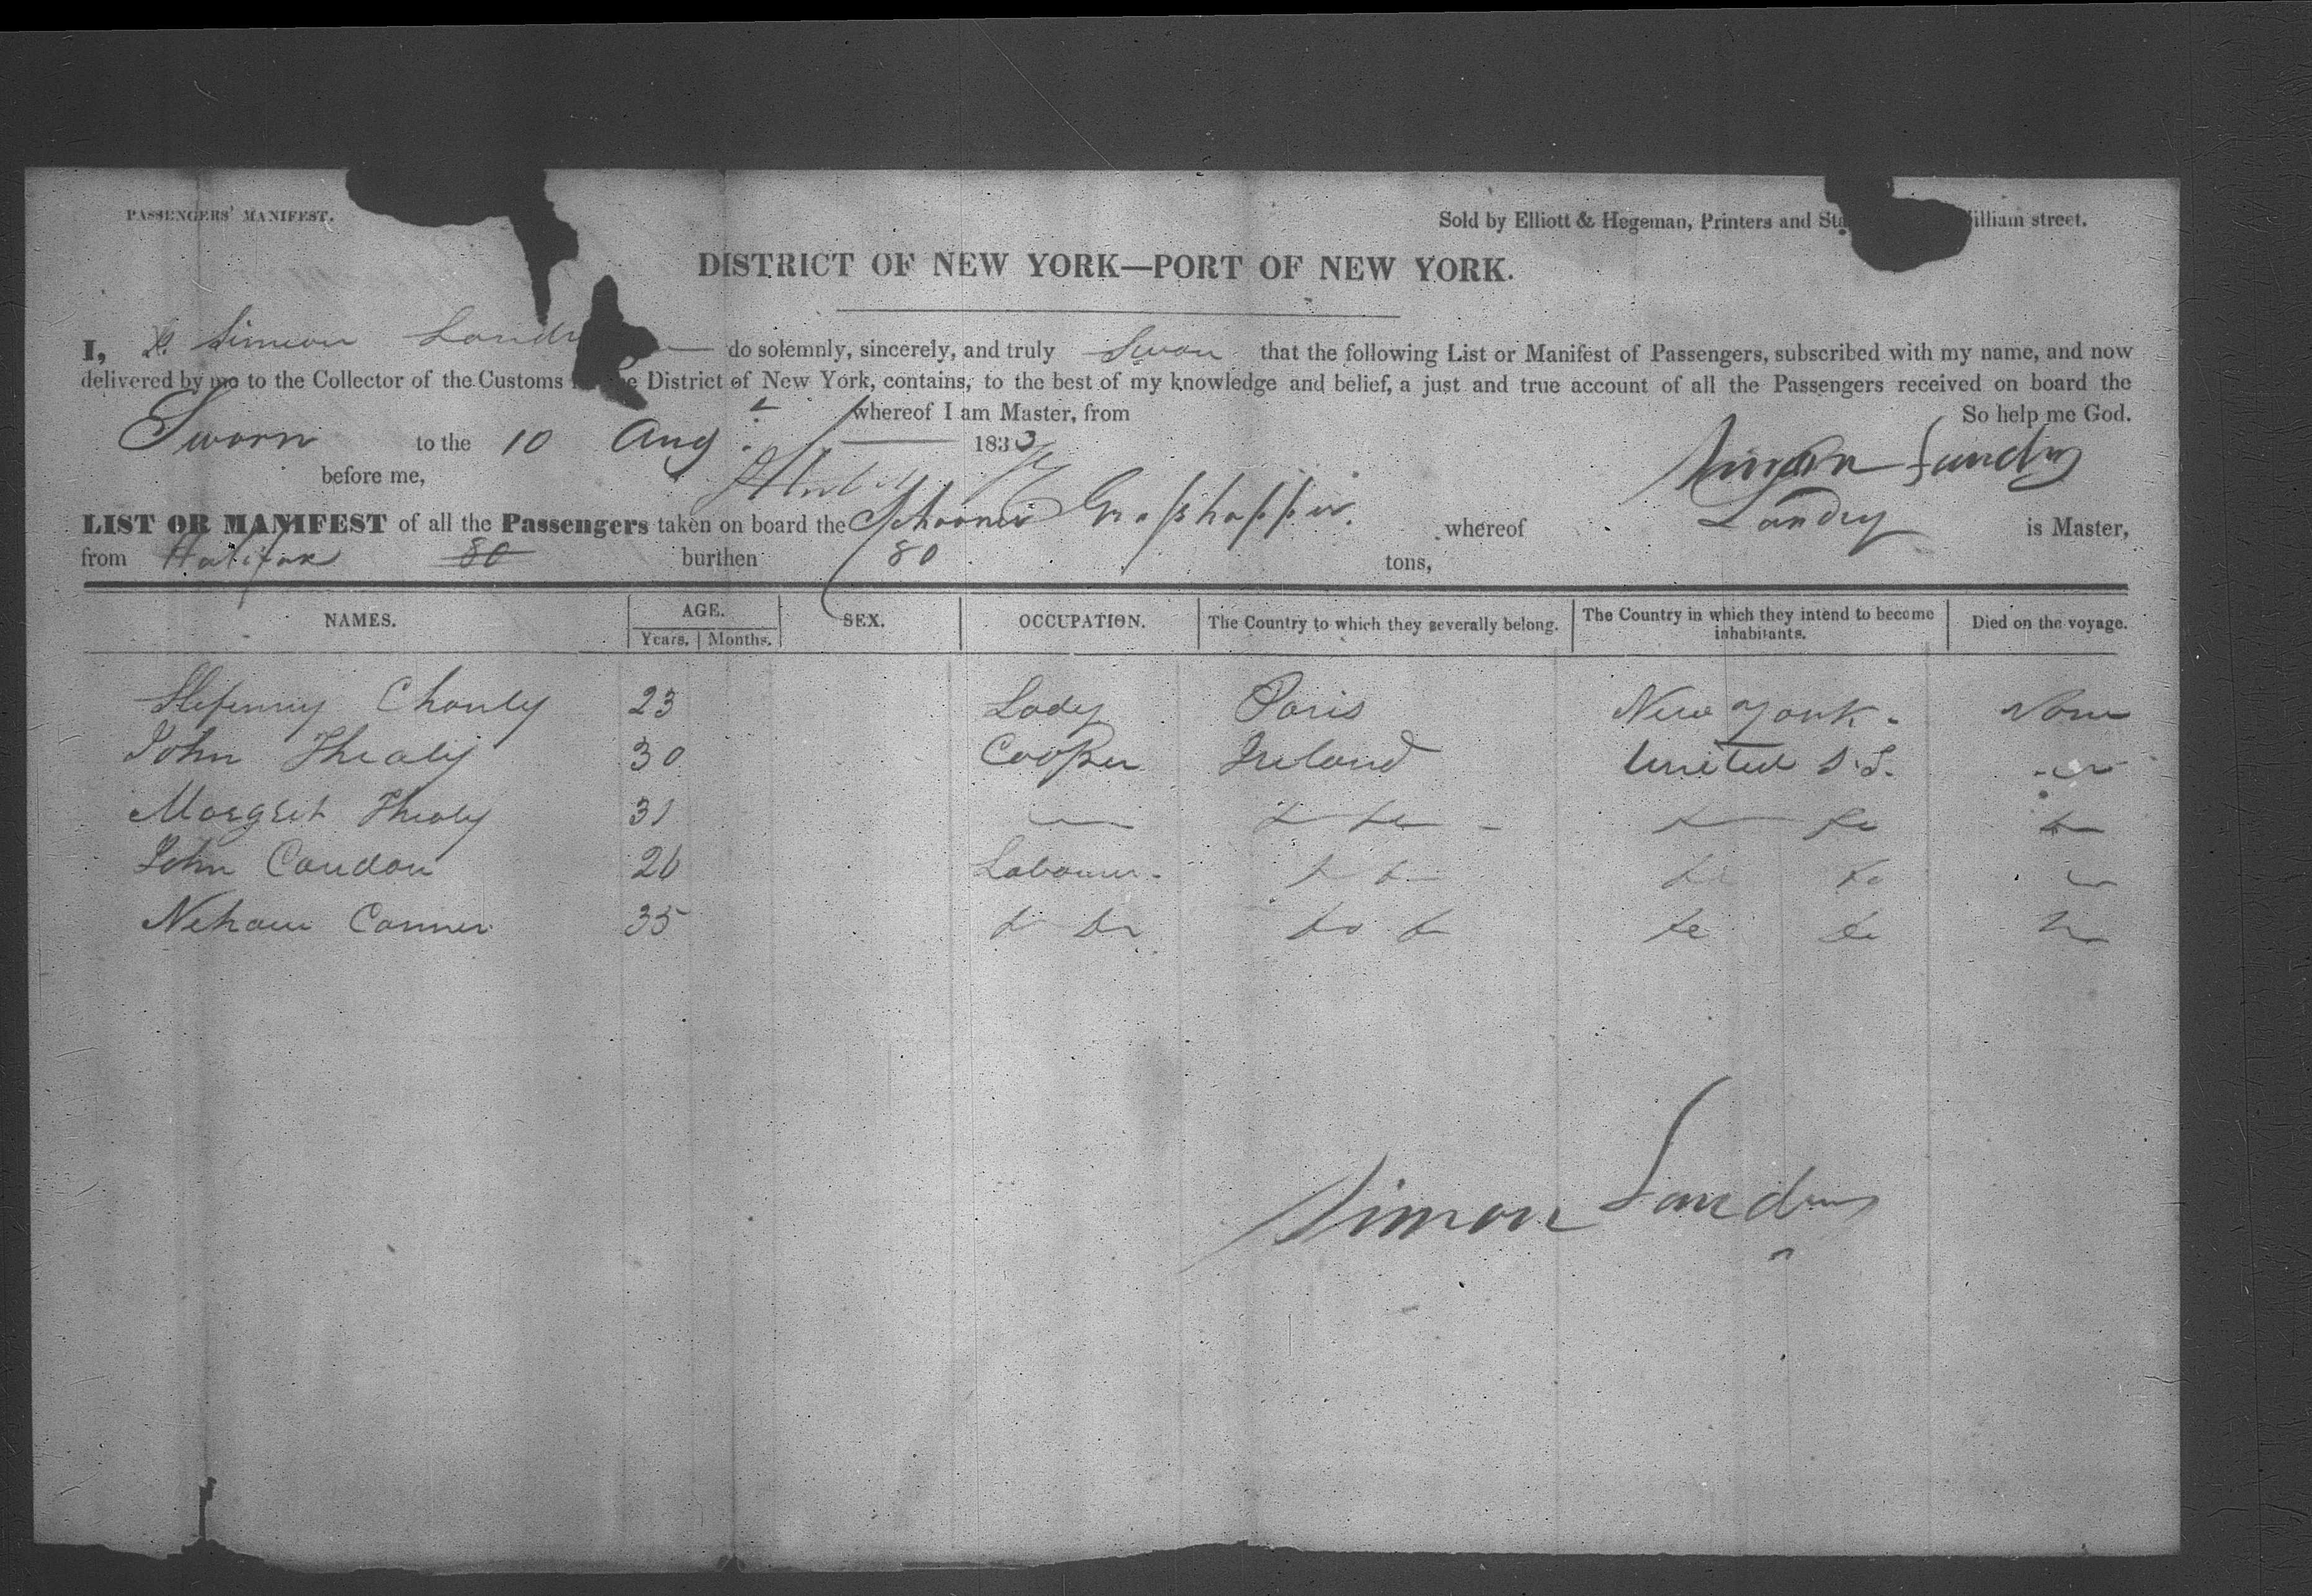 PASSENGERS' MANIFEST.
Sold by Elliott & Hegeman, Printers and Sta illiam street.
DISTRICT OF NEW YORK—PORT OF NEW YORK.
I, Simeon Landr do solemnly, sincerely, and truly Swear that the following List or Manifest of Passengers, subscribed with my name, and now
delivered by me to the Collector of the Customs e District of New York, contains, to the best of my knowledge and belief, a just and true account of all the Passengers received on board the
whereof I am Master, from So help me God.
Sworn to the 10 Aug 1833 Simon Landry
before me,
LIST OR MANIFEST of all the Passengers taken on board the Schooner Grasshopper. whereof Landry is Master,
from Halifax 80 burthen 80 tons,
NAMES. AGE. SEX. OCCUPATION. The Country to which they severally belong. The Country in which they intend to become inhabitants. Died on the voyage.
Years. Months.
Chonly 23 Lady Paris New York. None
John Thealy 30 Cooper Ireland United S.S.
Margret Thealy 31
John Condon 26 Labourer.
Conner 35
Simon Landry